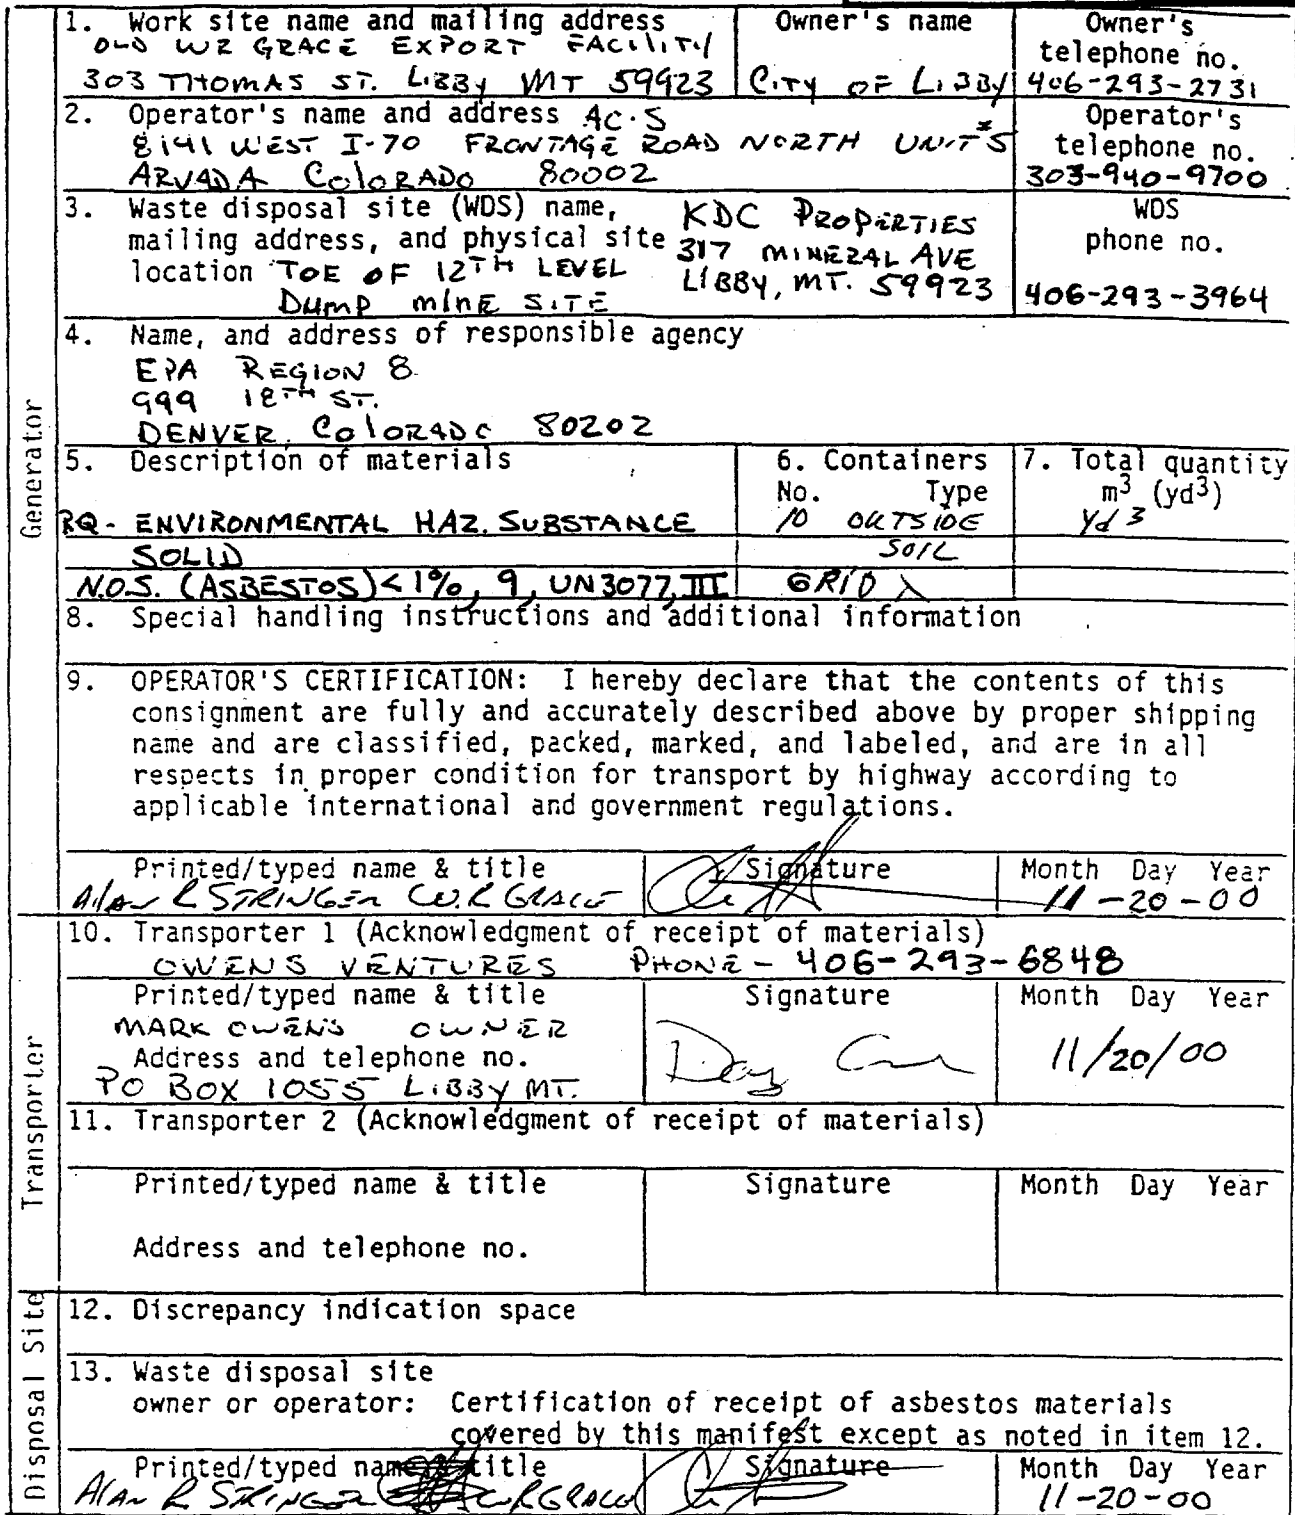 Generator
1. Work site name and mailing address
OLD WR GRACE EXPORT FACILITY
303 THOMAS ST. LIBBY MT 59923
Owner's name
CITY OF LIBBY
Owner's
telephone no.
406-293-2731
2. Operator's name and address AC·S
8141 WEST I-70 FRONTAGE ROAD NORTH UNIT #5
ARVADA COLORADO 80002
Operator's
telephone no.
303-940-9700
3. Waste disposal site (WDS) name,
mailing address, and physical site
location TOE OF 12TH LEVEL
DUMP MINE SITE
KDC PROPERTIES
317 MINERAL AVE
LIBBY, MT. 59923
WDS
phone no.
406-293-3964
4. Name, and address of responsible agency
EPA REGION 8
999 18TH ST.
DENVER, COLORADO 80202
5. Description of materials
RQ - ENVIRONMENTAL HAZ. SUBSTANCE
SOLID
N.O.S. (ASBESTOS) < 1%, 9, UN3077, III
6. Containers
No. Type
10 OUTSIDE
SOIL
GRID
7. Total quantity
m3 (yd3)
Yd3
8. Special handling instructions and additional information
9. OPERATOR'S CERTIFICATION: I hereby declare that the contents of this
consignment are fully and accurately described above by proper shipping
name and are classified, packed, marked, and labeled, and are in all
respects in proper condition for transport by highway according to
applicable international and government regulations.
Printed/typed name & title
Alan R STRINGER W.R GRACE
Signature
Month Day Year
11-20-00
Transporter
10. Transporter 1 (Acknowledgment of receipt of materials)
OWENS VENTURES PHONE - 406-293-6848
Printed/typed name & title
MARK OWENS OWNER
Address and telephone no.
PO BOX 1055 LIBBY MT.
Signature
Month Day Year
11/20/00
11. Transporter 2 (Acknowledgment of receipt of materials)
Printed/typed name & title
Address and telephone no.
Signature
Month Day Year
Disposal Site
12. Discrepancy indication space
13. Waste disposal site
owner or operator: Certification of receipt of asbestos materials
covered by this manifest except as noted in item 12.
Printed/typed name & title
Alan R STRINGER W R GRACE
Signature
Month Day Year
11-20-00